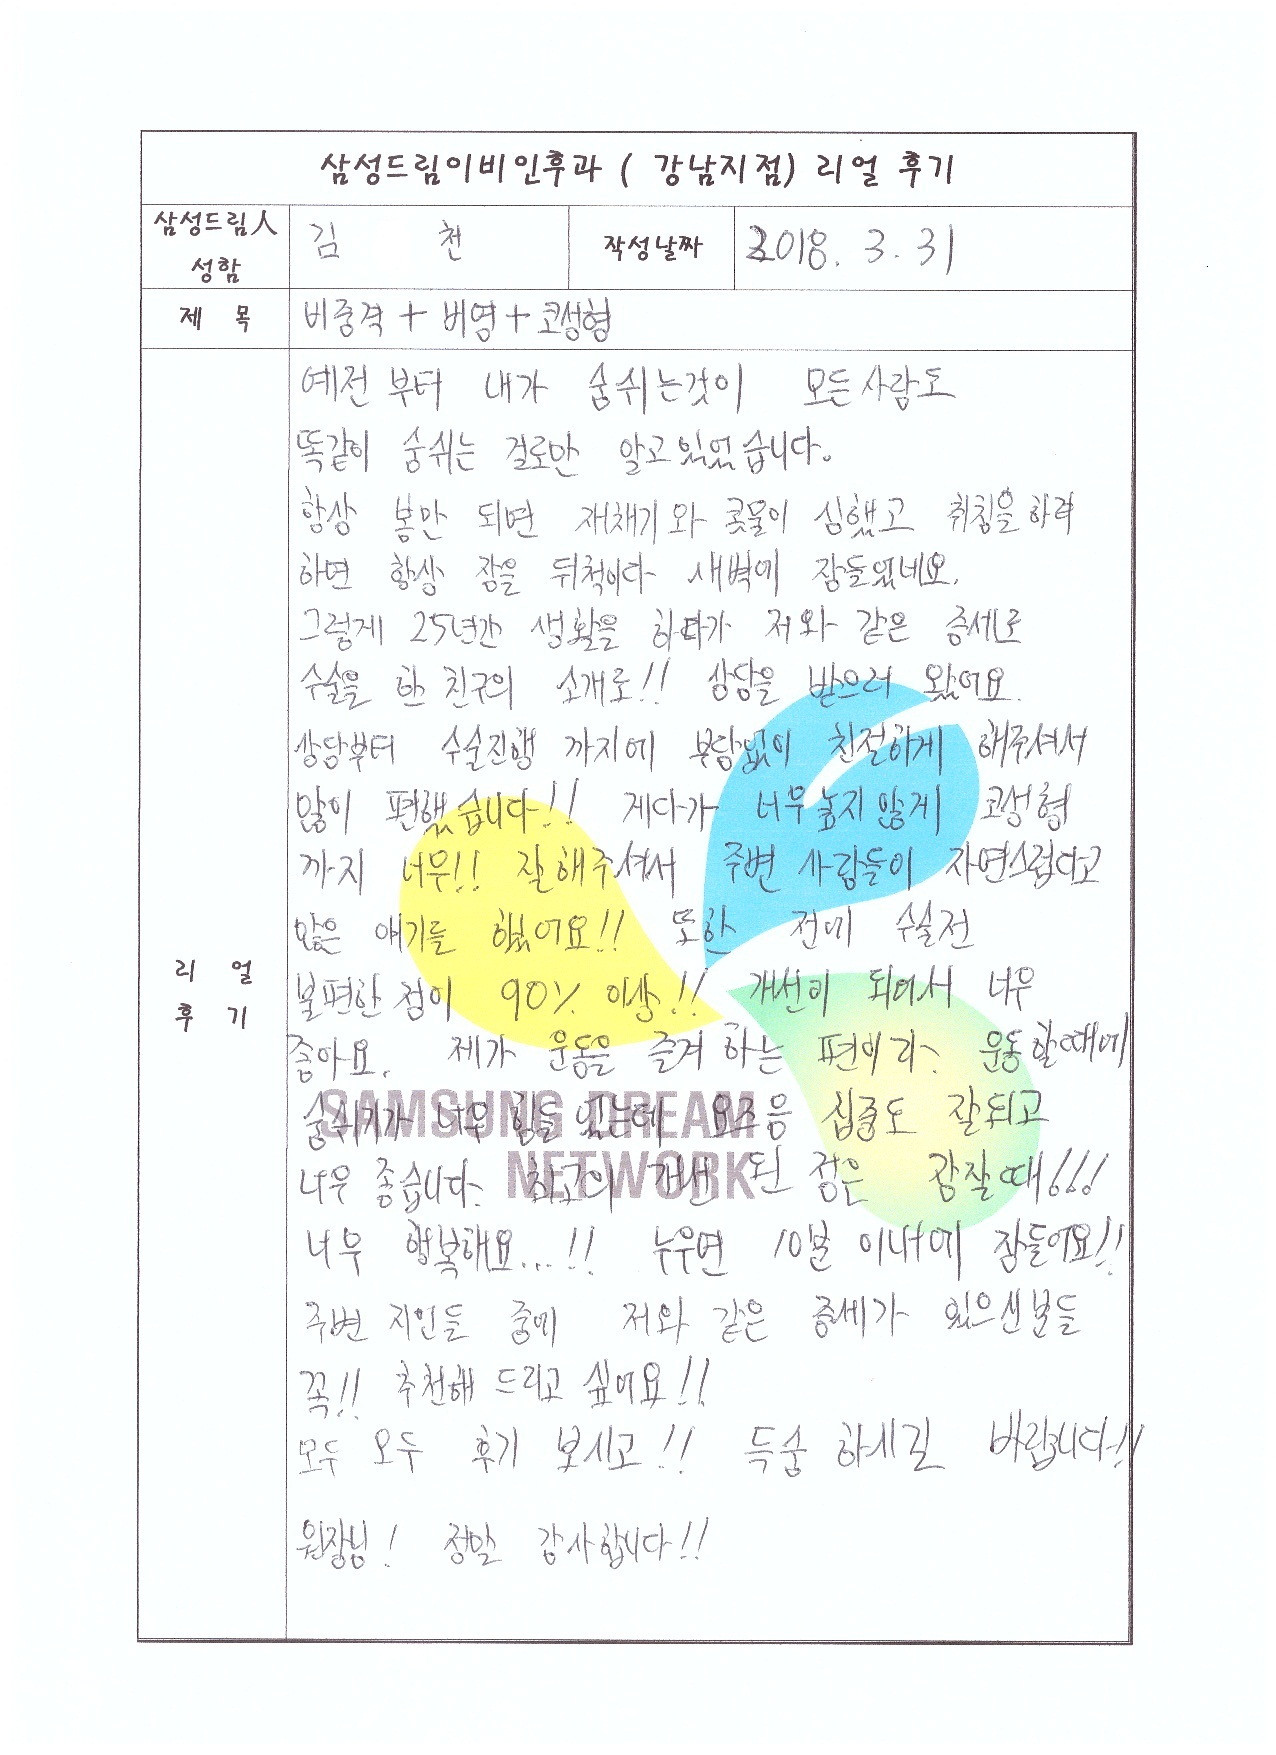 삼성드림이비인후과 ( 강남지점) 리얼 후기
삼성드림人 성함 김 천 작성날짜 2018. 3. 31
제 목 비중격 + 비염 + 코성형
리 얼 후 기
예전 부터 내가 숨쉬는것이 모든사람도
똑같이 숨쉬는 걸로만 알고있었습니다.
항상 봄만 되면 재채기와 콧물이 심했고 취침을하려
하면 항상 잠을 뒤척이다 새벽에 잠들었네요.
그렇게 25년간 생활을 하다가 저와 같은 증세로
수술을 한 친구의 소개로!! 상담을 받으러 왔어요.
상담부터 수술진행 까지에 부담없이 친절하게 해주셔서
많이 편했습니다!! 게다가 너무높지않게 코성형
까지 너무!! 잘해주셔서 주변 사람들이 자연스럽다고
많은 얘기를 했어요!! 또한 전에 수술전
불편한점이 90% 이상!! 개선이 되어서 너무
좋아요. 제가 운동을 즐겨 하는 편이라. 운동할때에
숨쉬기가 너무 힘들었는데 요즈음 집중도 잘되고
너무 좋습니다. 최고의 개선 된 점은 잠잘때!!!
너무 행복해요...!! 누우면 10분 이내에 잠들어요!!
주변 지인들 중에 저와 같은 증세가 있으신분들
꼭!! 추천해 드리고 싶어요!!
모두 모두 후기 보시고!! 득숨 하시길 바랍니다!!
원장님! 정말 감사합니다!!
SAMSUNG DREAM
NETWORK